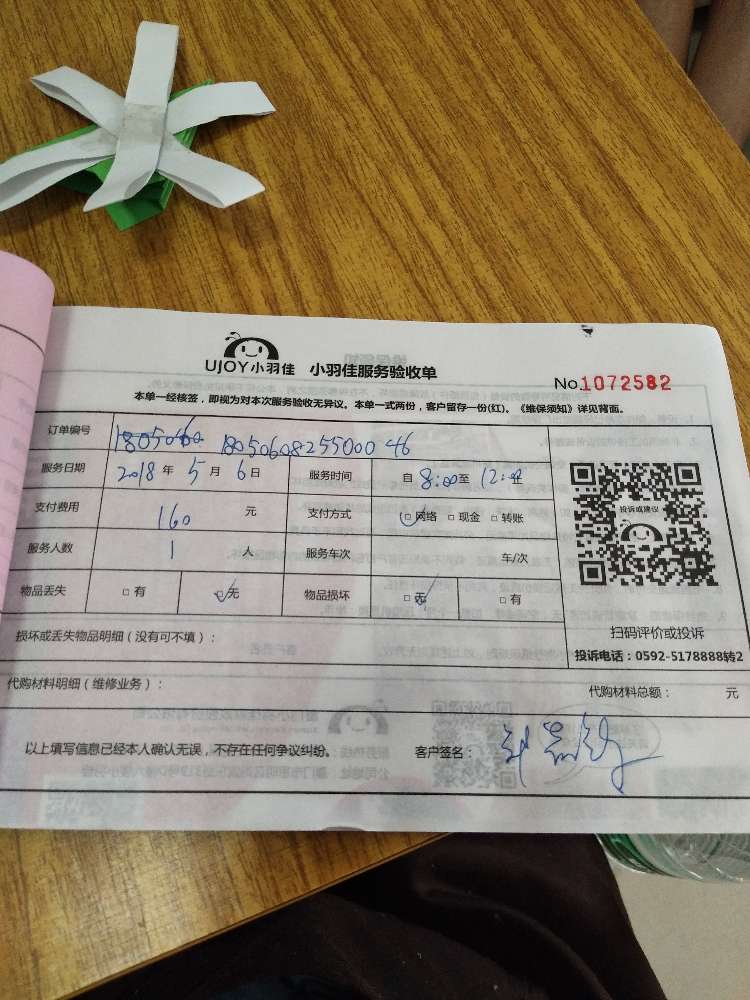 UJOY小羽佳 小羽佳服务验收单
No.1072582
本单一经核签，即视为对本次服务验收无异议。本单一式两份，客户留存一份(红)。《维保须知》详见背面。
订单编号 18050608255000 46
服务日期 2018 年 5 月 6 日 服务时间 自 8:00 至 12:00
支付费用 160 元 支付方式 网络 □ 现金 □ 转账
投诉或建议
服务人数 1 人 服务车次 车/次
物品丢失 □ 有 ☑无 物品损坏 ☑无 □ 有
扫码评价或投诉
损坏或丢失物品明细（没有可不填）：
投诉电话：0592-5178888转2
代购材料明细（维修业务）： 代购材料总额： 元
以上填写信息已经本人确认无误，不存在任何争议纠纷。 客户签名：